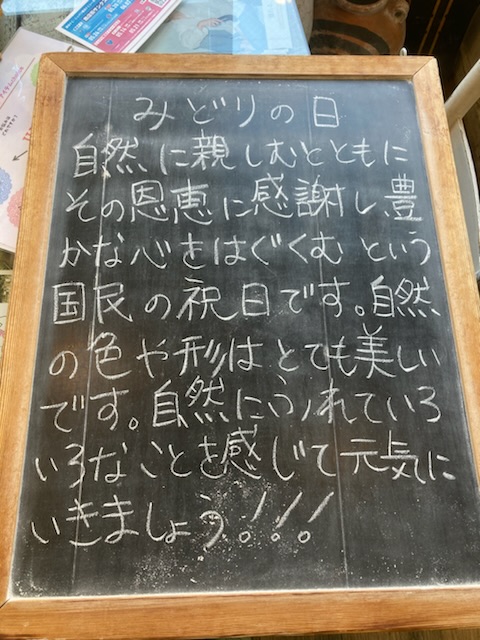 みどりの日
自然に親しむとともに
その恩恵に感謝し、豊
かな心をはぐくむという
国民の祝日です。自然
の色や形はとても美しい
です。自然にふれていろ
いろなことを感じて元気に
いきましょう!!!